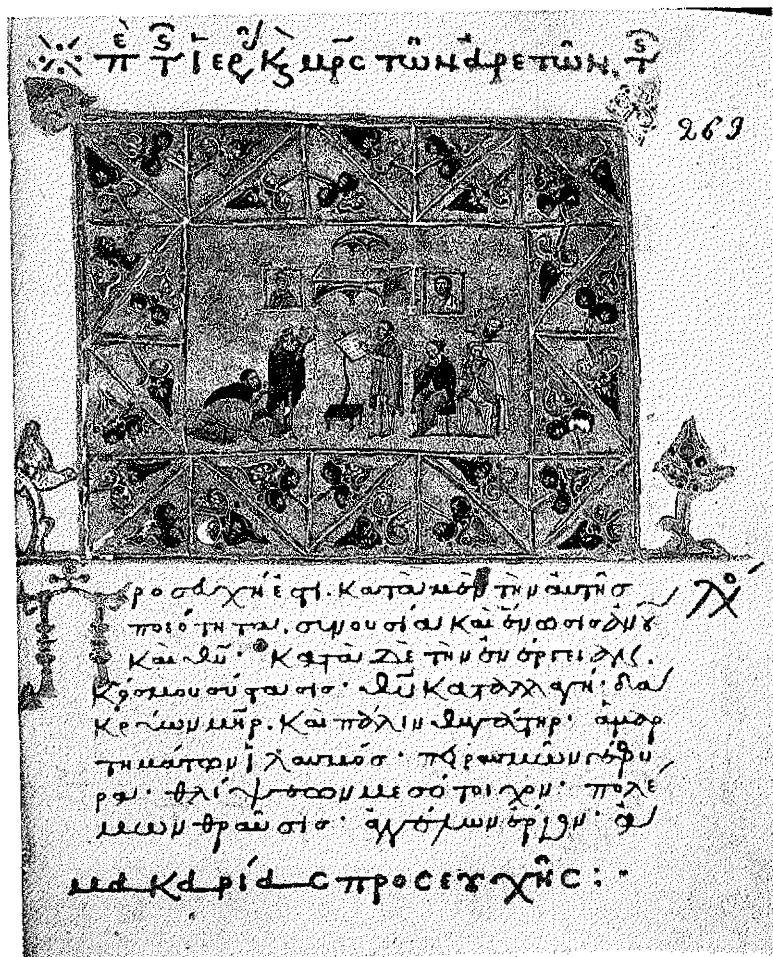 πε τ ἱερ κς μρς τῶν ἀρετῶν. τ
269
Προσευχή ἐστι. κατὰ μὲν τὴν αὐτῆς
ποιότητα. συνουσία καὶ ἕνωσις ἀνου
καὶ θυ· κατὰ δὲ τὴν ἐνέργειαν.
κόσμου σύστασις· θυ καταλλαγή· δα
κρύων μηρ. καὶ πάλιν θυγάτηρ· ἁμαρ
τημάτων ἱλασμός· πειρασμῶν γέφυ
ρα· θλίψεων μεσότοιχον· πολέ
μων θραῦσις· ἀγγέλων ἔργον·
μακαρίας προσευχῆς :